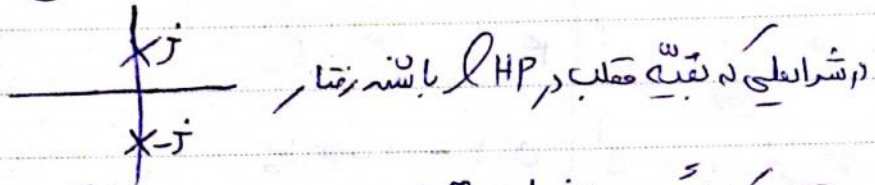 j
در شرایطی که بقیه قطب در LHP باشند رفتار
-j